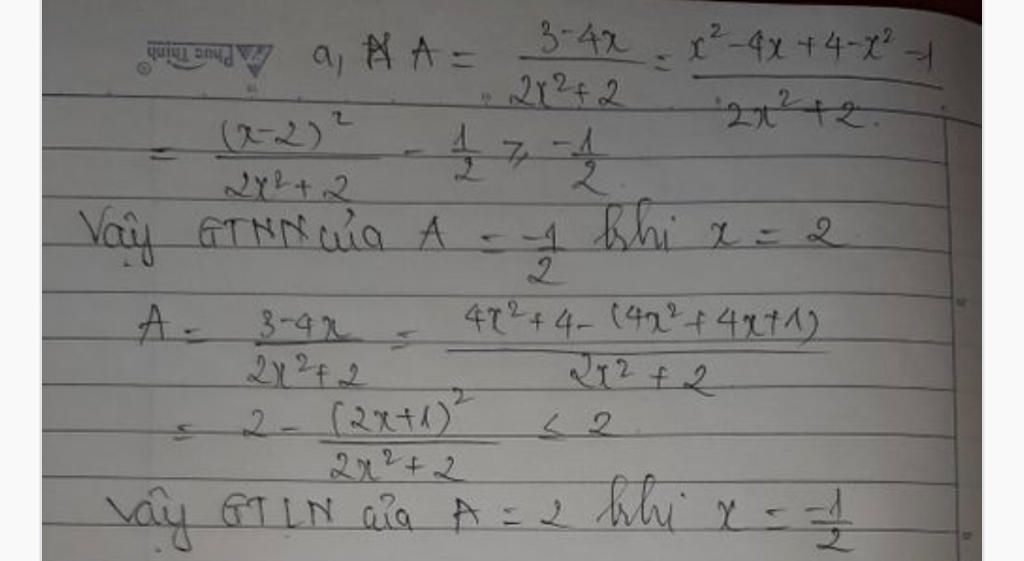 Phúc Thịnh ®
a, A = (3-4x)/(2x²+2) = (x²-4x+4-x²-1)/(2x²+2).
= (x-2)²/(2x²+2) - 1/2 ⩾ -1/2.
Vậy GTNN của A = -1/2 khi x = 2
A = (3-4x)/(2x²+2) = (4x²+4-(4x²+4x+1))/(2x²+2)
= 2 - (2x+1)²/(2x²+2) ≤ 2
Vậy GTLN của A = 2 khi x = -1/2